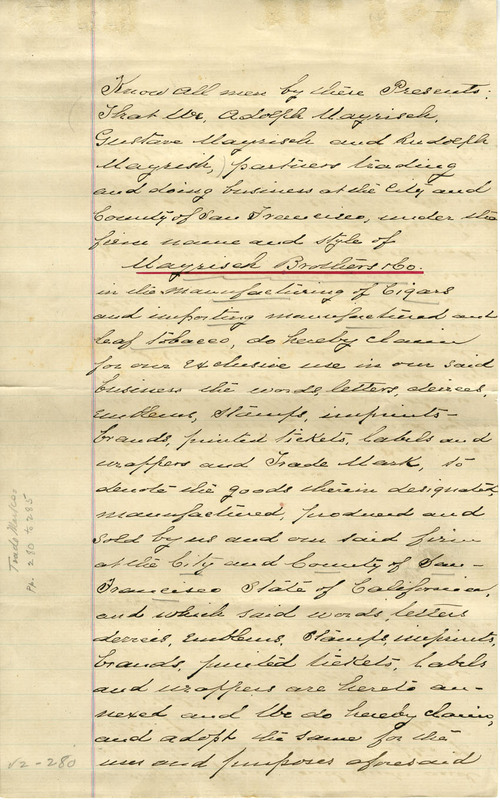 Know all men by these Presents:
That We, Adolph Mayrisch,
Gustave Mayrisch and Rudolph
Mayrish, partners trading
and doing business at the City and
County of San Francisco, under the
firm name and style of
Mayrisch Brothers & Co.
in the manufacturing of Cigars
and importing manufactured and
leaf tobacco, do hereby claim
for our exclusive use in our said
business the words, letters, devices,
emblems, stamps, imprints-
brands, printed tickets, labels and
wrappers and Trade Mark, to
denote the goods therein designated,
manufactured, produced and
sold by us and our said firm
at the City and County of San-
Francisco State of California,
and which said words, letters
devices, emblems, stamps, imprints,
brands, printed tickets, labels
and wrappers are hereto an-
nexed and We do hereby claim,
and adopt the same for the
uses and purposes aforesaid
Trade Marks
Pp. 280 to 285
V2-280